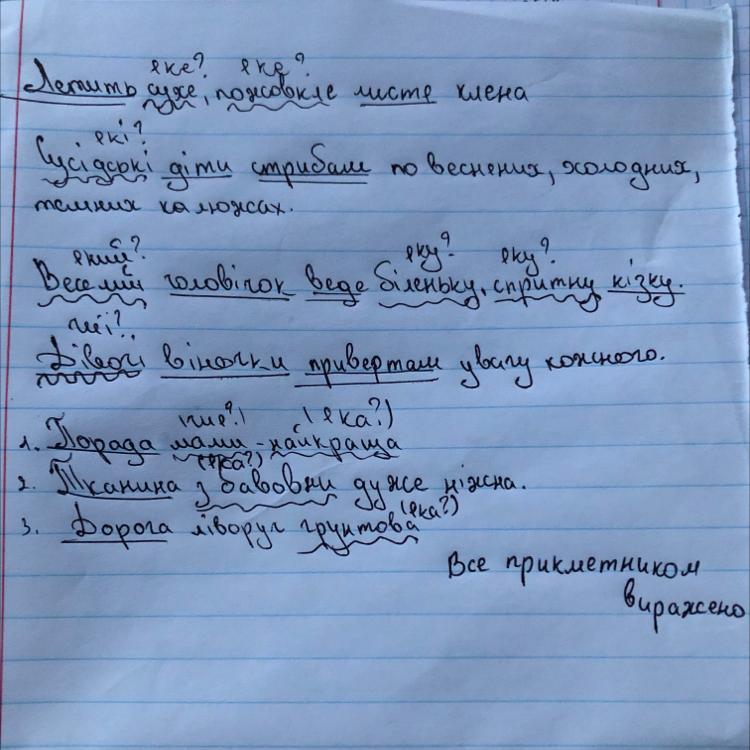 яке? яке?
Летить сухе, пожовкле листе клена
які?
Сусідські діти стрибали по веснених, холодних,
темних калюжах.
який? яку? яку?
Веселий чоловічок веде біленьку, спритну кізку.
чиї?
Дівочі віночки привертали увагу кожного.
чия?) (яка?)
1. Порада мами - найкраща
(яка?)
2. Тканина з бавовни дуже ніжна.
(яка?)
3. Дорога ліворуч грунтова
Все прикметником
виражено